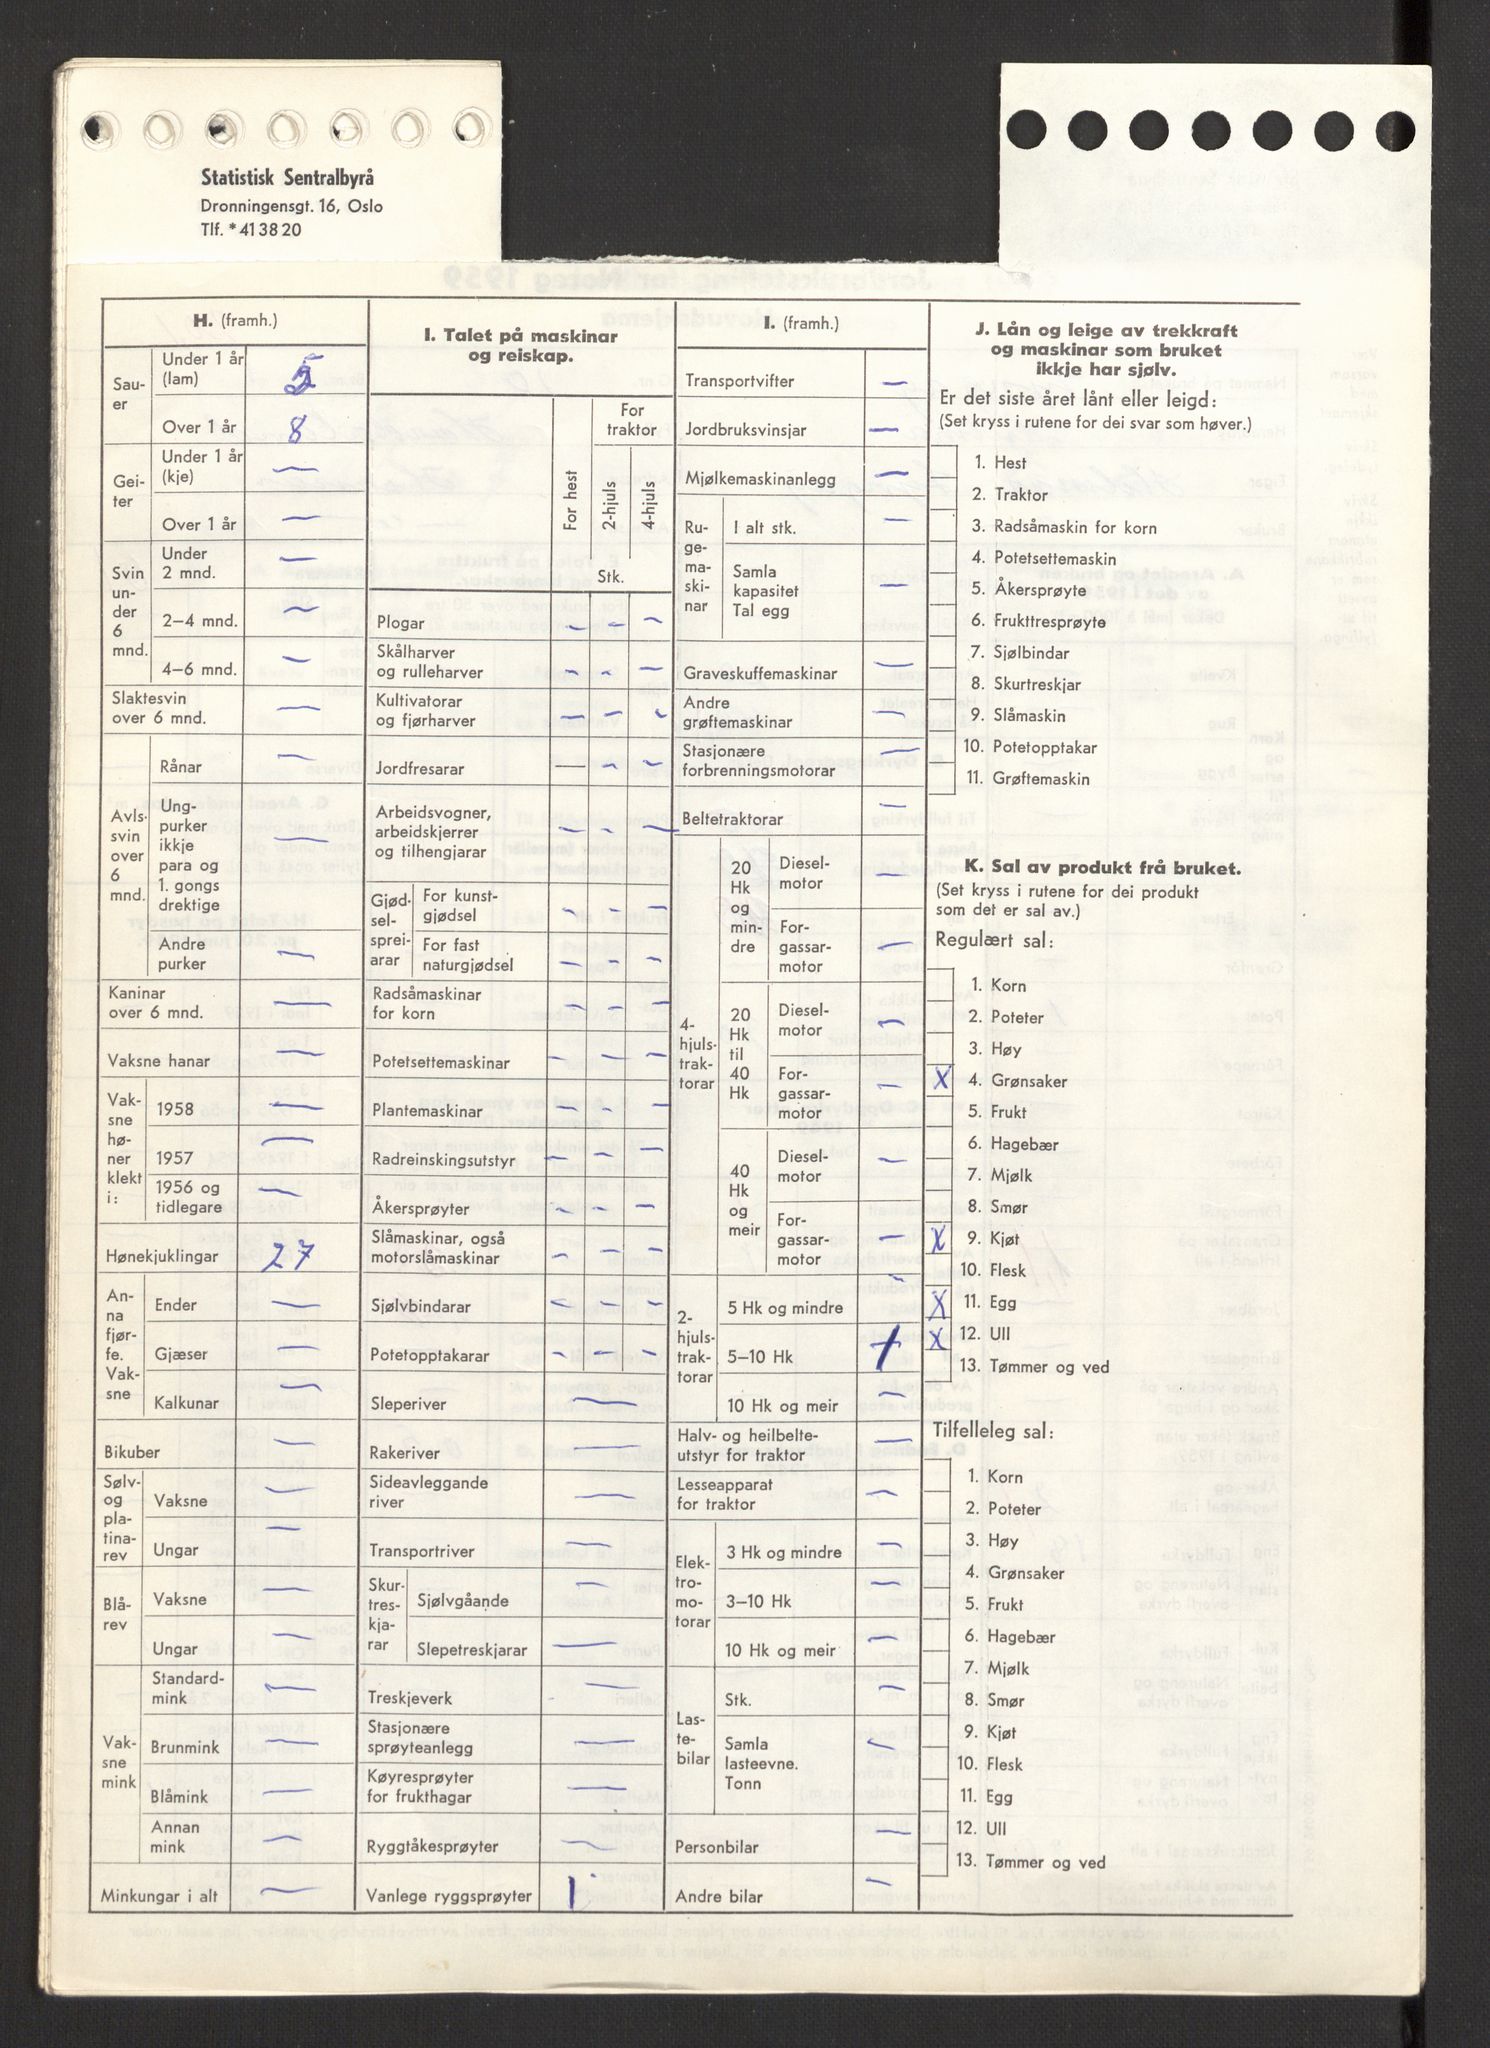 Statistisk Sentralbyrå
Dronningensgt. 16, Oslo
Tlf. *41 38 20
H. (framh.)
Sau-
er
Under 1 år
(lam) 5
Over 1 år 8
Geiter
Under 1 år
(kje) —
Over 1 år —
Svin
un-
der
6
mnd.
Under
2 mnd. —
2–4 mnd. —
4–6 mnd. —
Slaktesvin
over 6 mnd. —
Avls-
svin
over
6
mnd.
Rånar —
Ung-
purker
ikkje
para og
1. gongs
drektige —
Andre
purker —
Kaninar
over 6 mnd. —
Vaksne hanar —
Vak-
sne
hø-
ner
klekt
i:
1958 —
1957 —
1956 og
tidlegare —
Hønekjuklingar 27
An-
na
fjør-
fe.
Vak-
sne
Ender —
Gjæser —
Kalkunar —
Bikuber —
Sølv-
og
pla-
tina-
rev
Vaksne —
Ungar —
Blå-
rev
Vaksne —
Ungar —
Vak-
sne
mink
Standard-
mink —
Brunmink —
Blåmink —
Annan
mink —
Minkungar i alt —
I. Talet på maskinar
og reiskap.
For hest
For
traktor
2-hjuls
4-hjuls
Stk.
Plogar — — —
Skålharver
og rulleharver — — —
Kultivatorar
og fjørharver — — —
Jordfresarar — — —
Arbeidsvogner,
arbeidskjerrer
og tilhengjarar — — —
Gjød-
sel-
sprei-
arar
For kunst-
gjødsel — — —
For fast
naturgjødsel — — —
Radsåmaskinar
for korn — — —
Potetsettemaskinar — — —
Plantemaskinar — — —
Radreinskingsutstyr — — —
Åkersprøyter — — —
Slåmaskinar, også
motorslåmaskinar — — —
Sjølvbindarar — — —
Potetopptakarar — — —
Sleperiver —
Rakeriver —
Sideavleggande
river —
Transportriver —
Skur-
tres-
kja-
rar
Sjølvgåande —
Slepetreskjarar —
Treskjeverk —
Stasjonære
sprøyteanlegg —
Køyresprøyter
for frukthagar —
Ryggtåkesprøyter —
Vanlege ryggsprøyter 1
I. (framh.)
Transportvifter —
Jordbruksvinsjar —
Mjølkemaskinanlegg —
Ru-
ge-
ma-
ski-
nar
I alt stk. —
Samla
kapasitet
Tal egg —
Graveskuffemaskinar —
Andre
grøftemaskinar —
Stasjonære
forbrenningsmotorar —
Beltetraktorar —
4-
hjuls-
trak-
torar
20
Hk
og
min-
dre
Diesel-
motor —
For-
gassar-
motor —
20
Hk
til
40
Hk
Diesel-
motor —
For-
gassar-
motor —
40
Hk
og
meir
Diesel-
motor —
For-
gassar-
motor —
2-
hjuls-
trak-
torar
5 Hk og mindre —
5–10 Hk 1
10 Hk og meir —
Halv- og heilbelte-
utstyr for traktor —
Lesseapparat
for traktor —
Elek-
tro-
mo-
torar
3 Hk og mindre —
3–10 Hk —
10 Hk og meir —
Las-
te-
bilar
Stk. —
Samla
lasteevne.
Tonn —
Personbilar —
Andre bilar —
J. Lån og leige av trekkraft
og maskinar som bruket
ikkje har sjølv.
Er det siste året lånt eller leigd:
(Set kryss i rutene for dei svar som høver.)
1. Hest
2. Traktor
3. Radsåmaskin for korn
4. Potetsettemaskin
5. Åkersprøyte
6. Frukttresprøyte
7. Sjølbindar
8. Skurtreskjar
9. Slåmaskin
10. Potetopptakar
11. Grøftemaskin
K. Sal av produkt frå bruket.
(Set kryss i rutene for dei produkt
som det er sal av.)
Regulært sal:
1. Korn
2. Poteter
3. Høy
X 4. Grønsaker
5. Frukt
6. Hagebær
7. Mjølk
8. Smør
X 9. Kjøt
10. Flesk
X 11. Egg
X 12. Ull
13. Tømmer og ved
Tilfelleleg sal:
1. Korn
2. Poteter
3. Høy
4. Grønsaker
5. Frukt
6. Hagebær
7. Mjølk
8. Smør
9. Kjøt
10. Flesk
11. Egg
12. Ull
13. Tømmer og ved